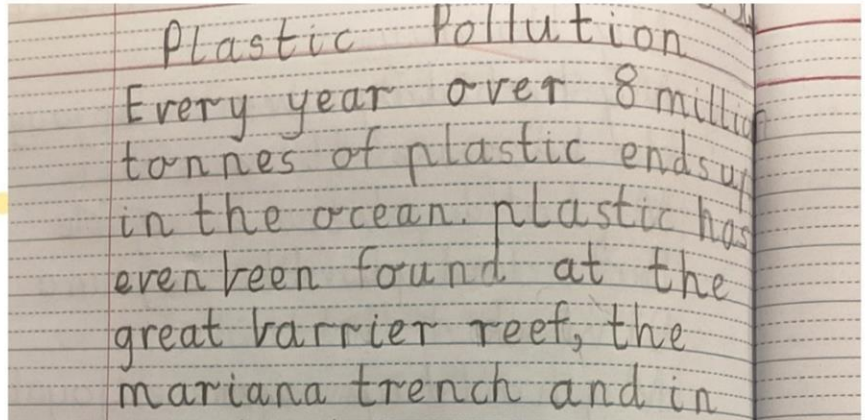 Plastic Pollution
Every year over 8 million
tonnes of plastic ends up
in the ocean. plastic has
even been found at the
great barrier reef, the
mariana trench and in